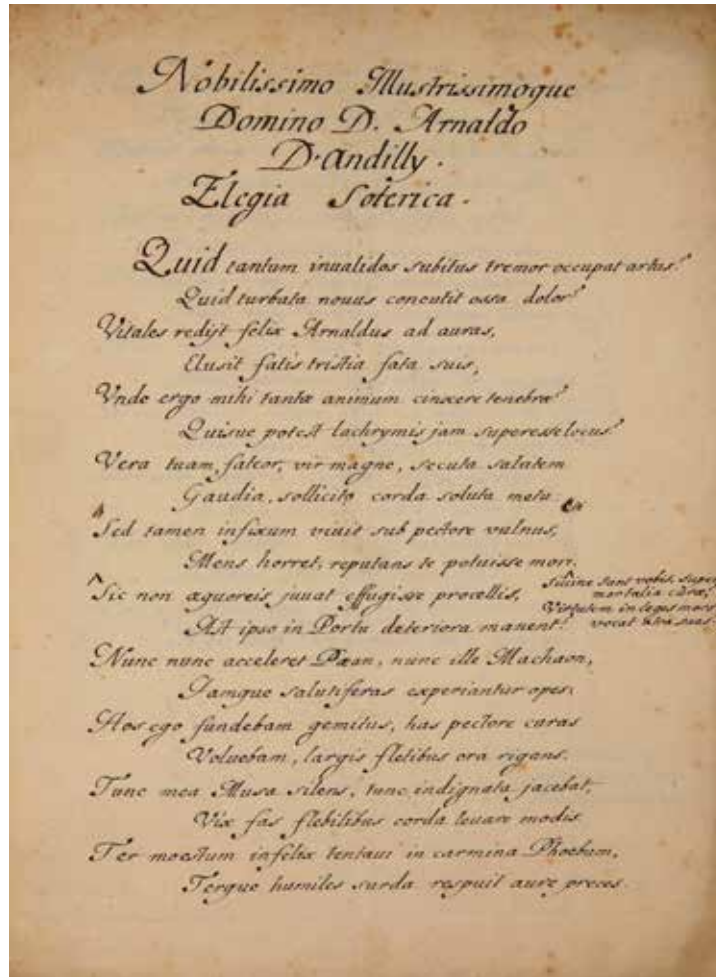 Nobilissimo Illustrissimoque
Domino D. Arnaldo
D'andilly.
Elegia Soterica.
Quid tantum inualidos subitus tremor occupat artus?
Quid turbata nouus concutit ossa dolor?
Vitales redijt felix Arnaldus ad auras,
Elusit fatis tristia fata suis,
Vnde ergo mihi tantæ animum cinxere tenebræ?
Quisue potest lachrymis jam superesse locus?
Vera tuam, fateor, vir magne, secuta salutem
Gaudia, sollicito corda soluta metu.
Sed tamen infixum viuit sub pectore vulnus,
Mens horret, reputans te potuisse mori.
Sic non æquoreis juuat effugisse procellis,
Ast ipso in Portu deteriora manent?
sans vobis, super
mortalia cura,
Virtutem in leges mors
vocat suas.
Nunc nunc acceleret Pæan, nunc ille Machaon,
Jamque salutiferas experiantur opes.
Hos ego fundebam gemitus, has pectore curas
Voluebam, largis fletibus ora rigans.
Tunc mea Musa silens, tunc indignata jacebat,
Vix fas flebilibus corda leuare modis.
Ter moestum infelix tentaui in carmina Phoebum,
Terque humiles surda respuit aure preces.